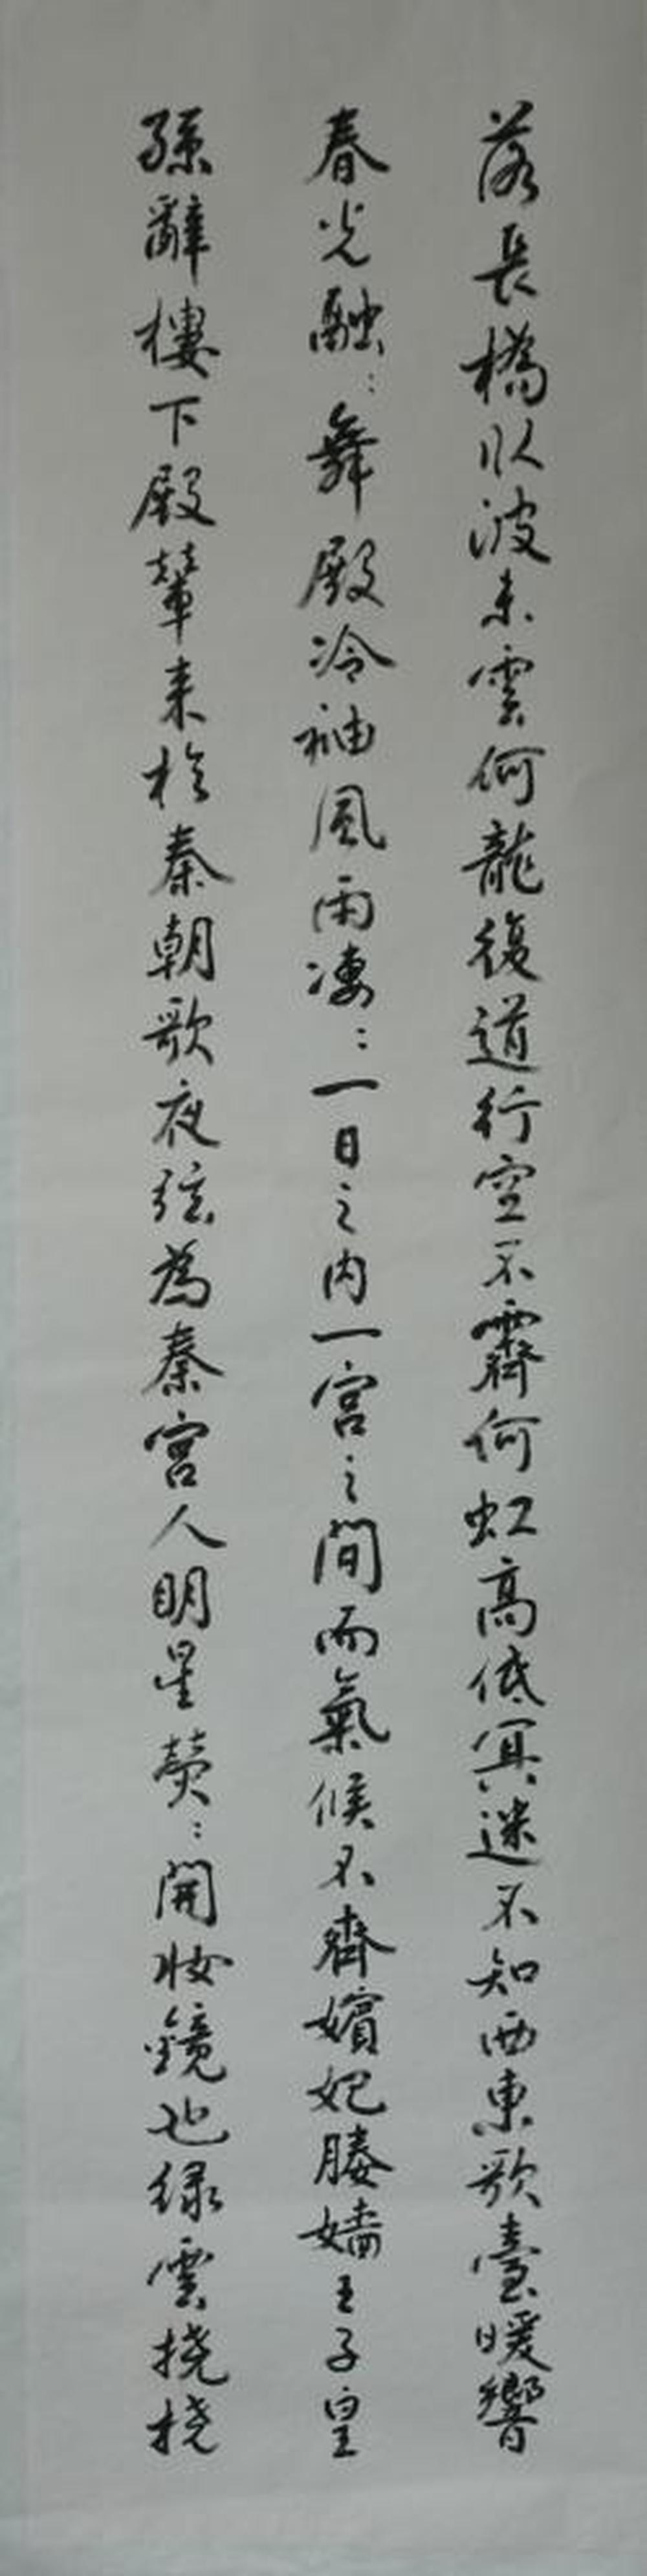 落長橋臥波未雲何龍復道行空不霽何虹高低冥迷不知西東歌臺暖響
春光融：舞殿冷袖風雨凄：一日之內一宮之間而氣候不齊嬪妃媵嬙王子皇
孫辭樓下殿輦来於秦朝歌夜弦為秦宮人明星熒：開妝鏡也緑雲撓撓